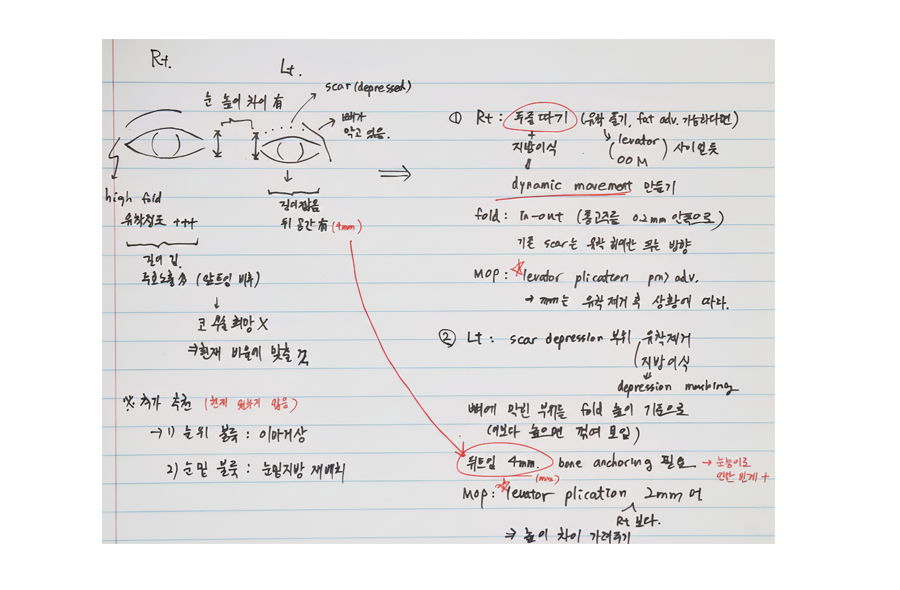 Rt.
Lt.
눈 높이 차이 有
scar (depressed)
뼈가
막고 있음.
high fold
유착정도 +++
길이 김.
(앞트임 비추)
코 모양 희망 X
⇒ 현재 바운에 맞출 것
길이 짧음
뒤 공간 有 (4mm)
※ 추가 추천 (현재 원하지 않음)
→ 1) 눈 위 볼록 : 이마거상
2) 눈 밑 볼록 : 눈밑지방 재배치
① Rt : 두줄따기 (유착 풀기, fat adv. 가능하다면)
+
지방이식 (levator
OOM) 사이인듯
dynamic movement 만들기
fold : in-out (0.2mm 안쪽으로)
기존 scar는 방향
MOP : ☆ levator plication pm> adv.
→ mm는 유착제거 후 상황에 따라.
② Lt : scar depression 부위 유착제거
지방이식
depression masking
뼈에 막힌 부위를 fold 높이 기준으로
(이보다 높으면 꺾여 보임)
뒤트임 4mm. bone anchoring 필요 → 눈높이로
인한 한계 +
(max)
MOP : ☆ levator plication 2mm 더
Rt 보다.
⇒ 높이 차이 가려주기